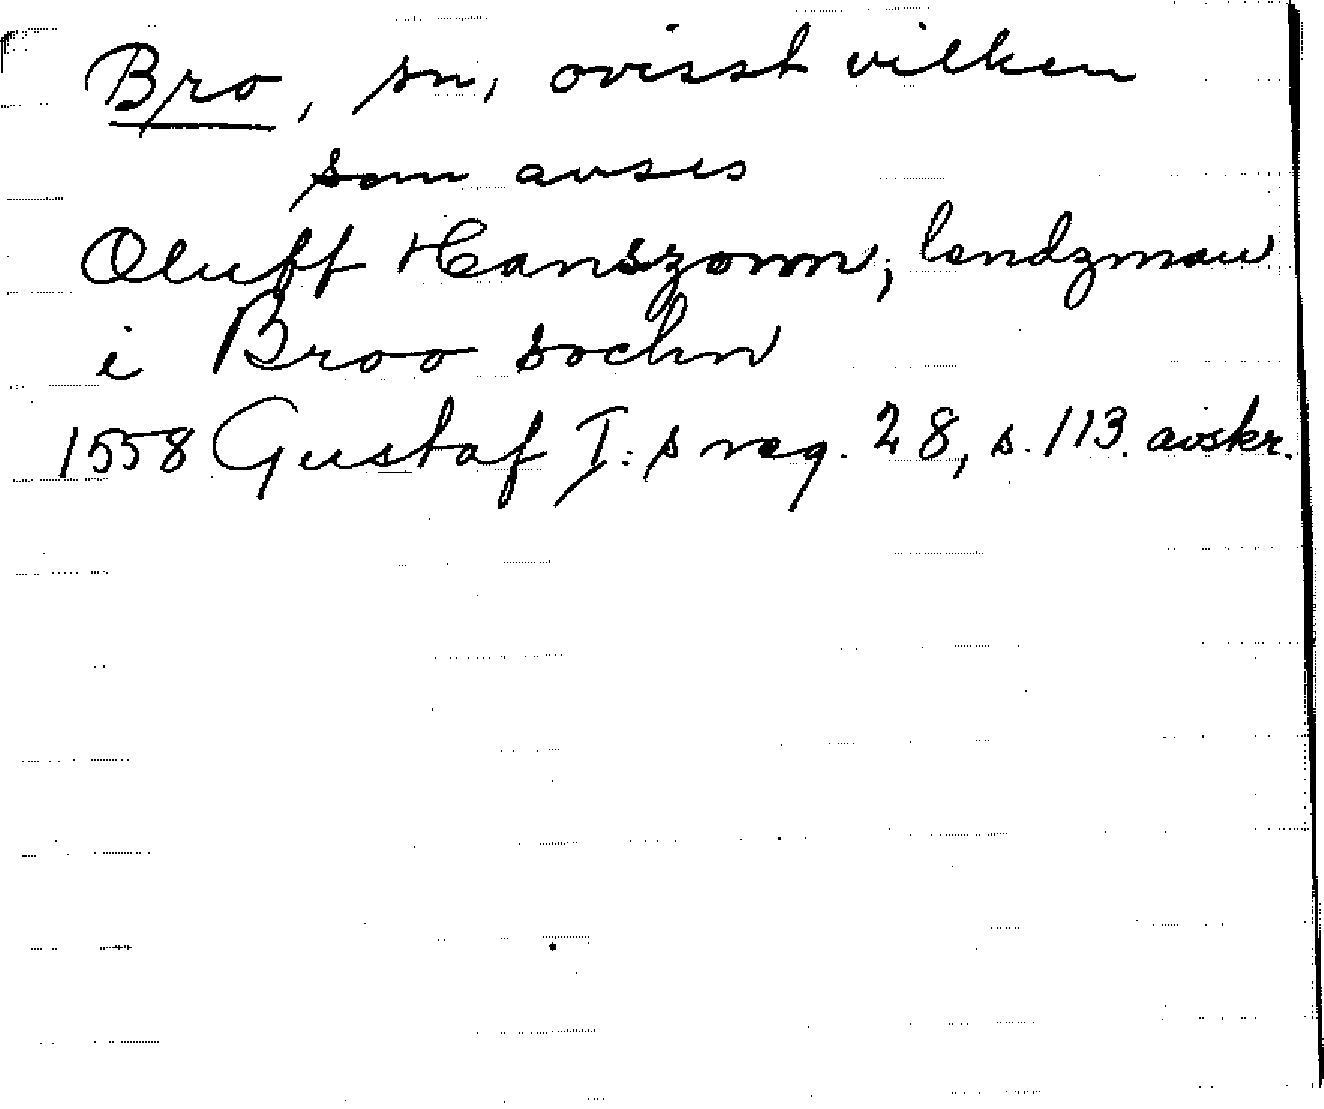 Bro, sn, ovisst vilken
som avses
Oluff Hanszonn, lendzman
i Broo sochn
1558 Gustaf I:s reg. 28, s. 113. avskr.